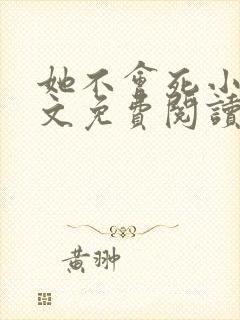 她不會死小
文免費閱讀
黃翀